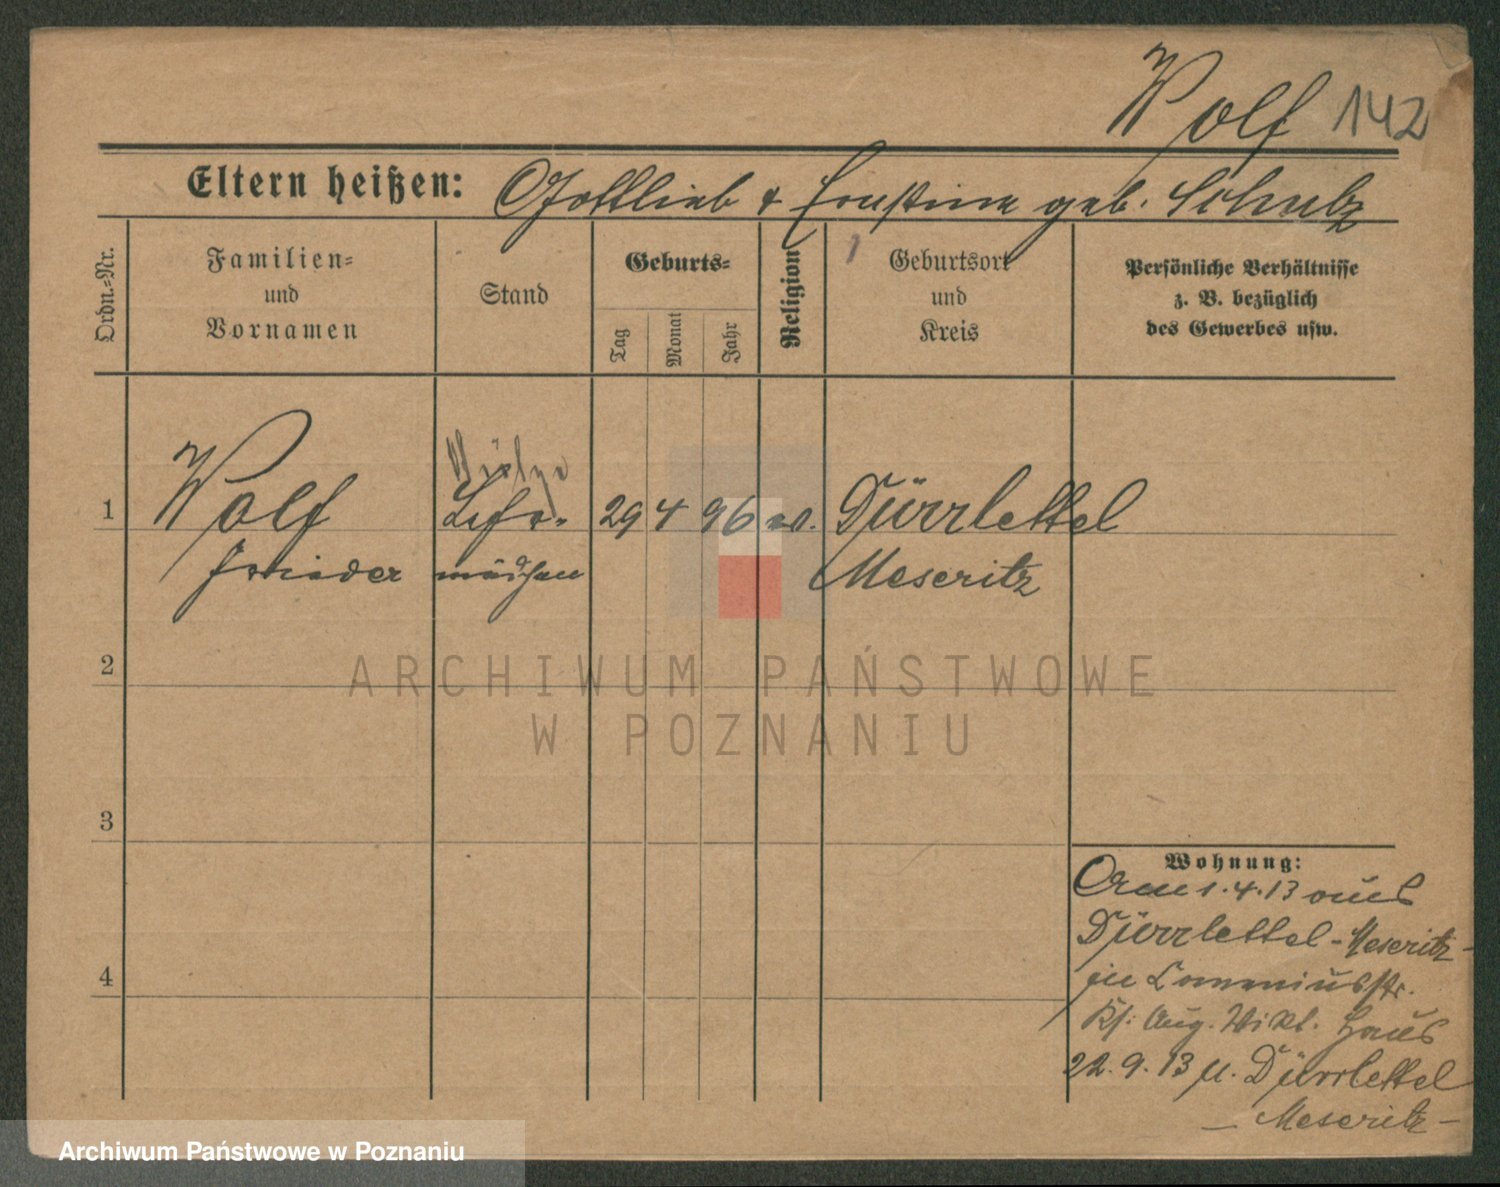 Wolf 142
Eltern heißen: Gottlieb & Ernstine geb. Schulz
Ordn.-Nr.
Familien-
und
Vornamen
Stand
Geburts-
Tag
Monat
Jahr
Religion
Geburtsort
und
Kreis
Persönliche Verhältnisse
z. B. bezüglich
des Gewerbes usw.
1
Wolf
Lehr-
mädchen
29 4 96 ev.
Dürrlettel
Meseritz
2
3
4
Wohnung:
Am 1.4.13 aus
Dürrlettel-Meseritz-
in Comeniusstr.
Ks: Aug. Vikt. Haus
22.9.13 n. Dürrlettel
- Meseritz -
ARCHIWUM PAŃSTWOWE
W POZNANIU
Archiwum Państwowe w Poznaniu